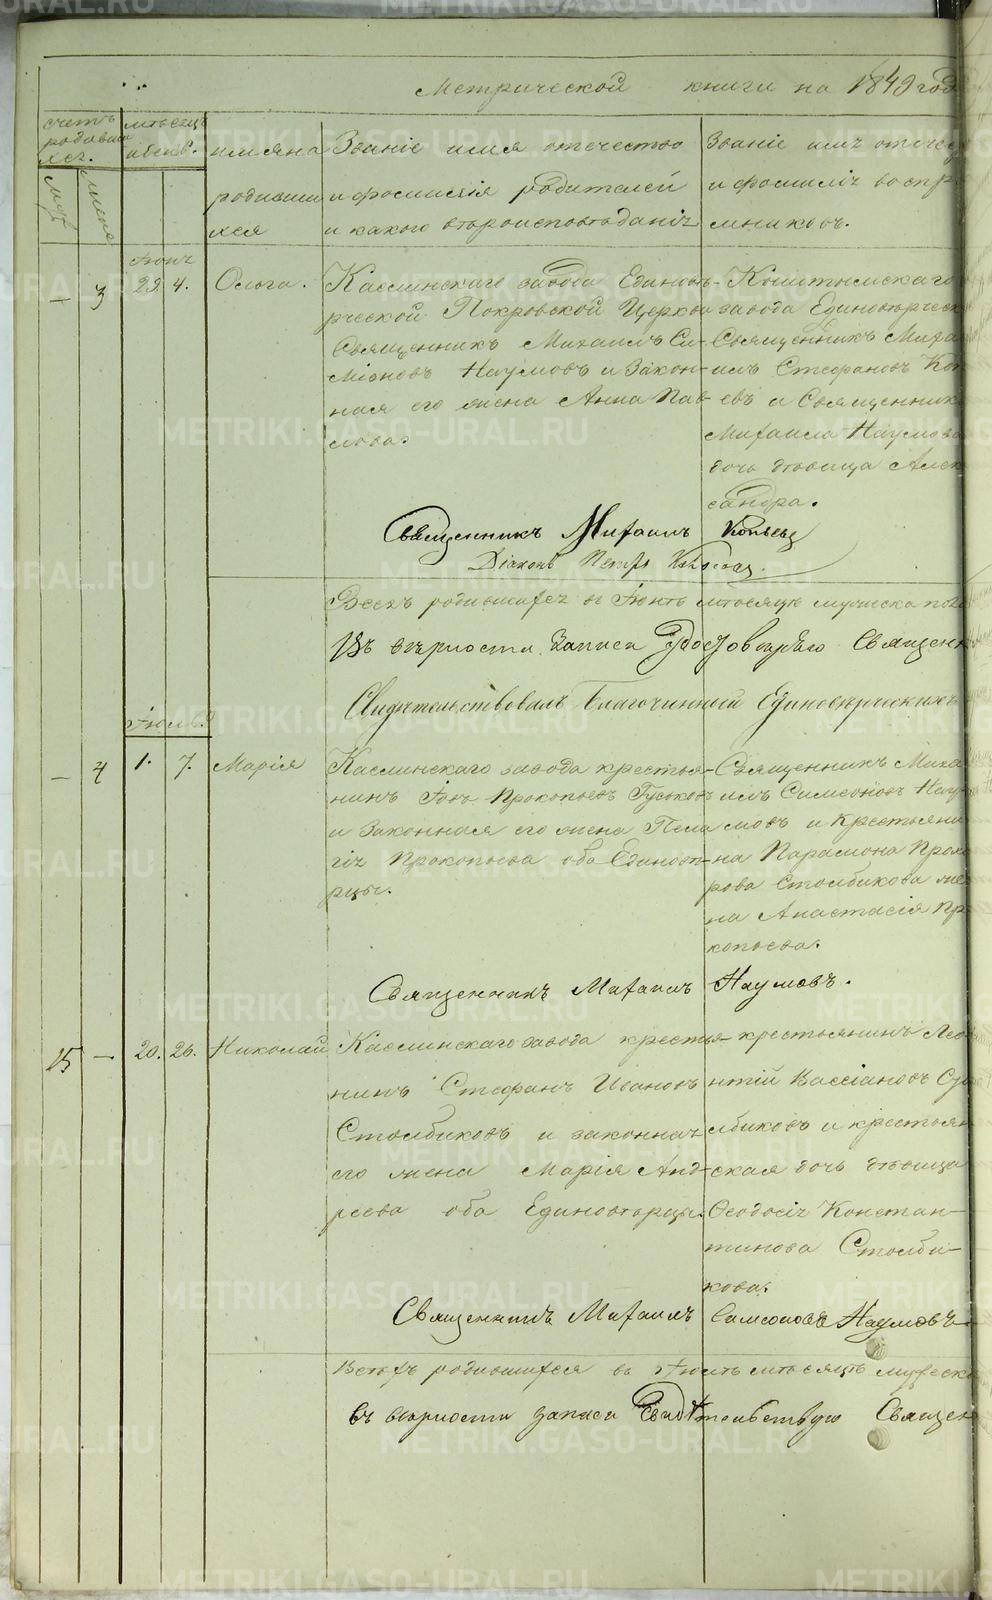 Метрической книги на 1849 год
счетъ родивших хся.
мѣсяцъ и день.
имяна родивши хся
Званіе имя отечество и фамилія родителей и какого вѣроисповѣданія
Званіе имъ отечес и фамилія воспр- мниковъ.
муж
женс
Іюнь
— 3 29. 4. Ольга.
Каслинскаго завода Единовѣ-
рческой Покровской Церкви
Священникъ Михаилъ Си-
міоновъ Наумовъ и закон-
ная его жена Анна Пав-
лова.
Кыштымскаго
завода Единовѣрческ
Священникъ Миха-
илъ Стефановъ Коп
евъ и Священник
Михаила Наумова
дочь дѣвица Алек
сандра.
Священникъ Михаилъ Копьевъ
Діаконъ Петръ
Всехъ родившихся въ Іюнѣ мѣсяцѣ мужеска пола
Въ вѣрности записи удостовѣряю Священн
Свидѣтельствовалъ Благочинный Единовѣрческихъ
Іюль.
— 4 1. 7. Марія
Каслинскаго завода крестья-
нинъ Іовъ Прокопьевъ Гуськовъ
и законная его жена Пела
гія Прокопьева оба Единовѣ-
рцы.
Священникъ Миха
илъ Симеоновъ Нау-
мовъ и Крестьяни
на Парамона Прохо
рова Столбикова же
на Анастасія Пр
копьева.
Священникъ Михаилъ Наумовъ.
15 — 20. 26. Николай
Каслинскаго завода кресть-
нинъ Стефанъ Ивановъ
Столбиковъ и законная
его жена Марія Анд-
реева оба Единовѣрцы.
крестьянинъ Лео
нтій Вассіановъ Сто
лбиковъ и крестьян
ская дочь дѣвица
Ѳеодосія Констан-
тинова Столби-
кова.
Священникъ Михаилъ Симеоновъ Наумовъ
Всѣхъ родившихся въ Іюлѣ мѣсяцѣ мужеска
въ вѣрности записи свидѣтельствую Священ
METRIKI.GASO-URAL.RU